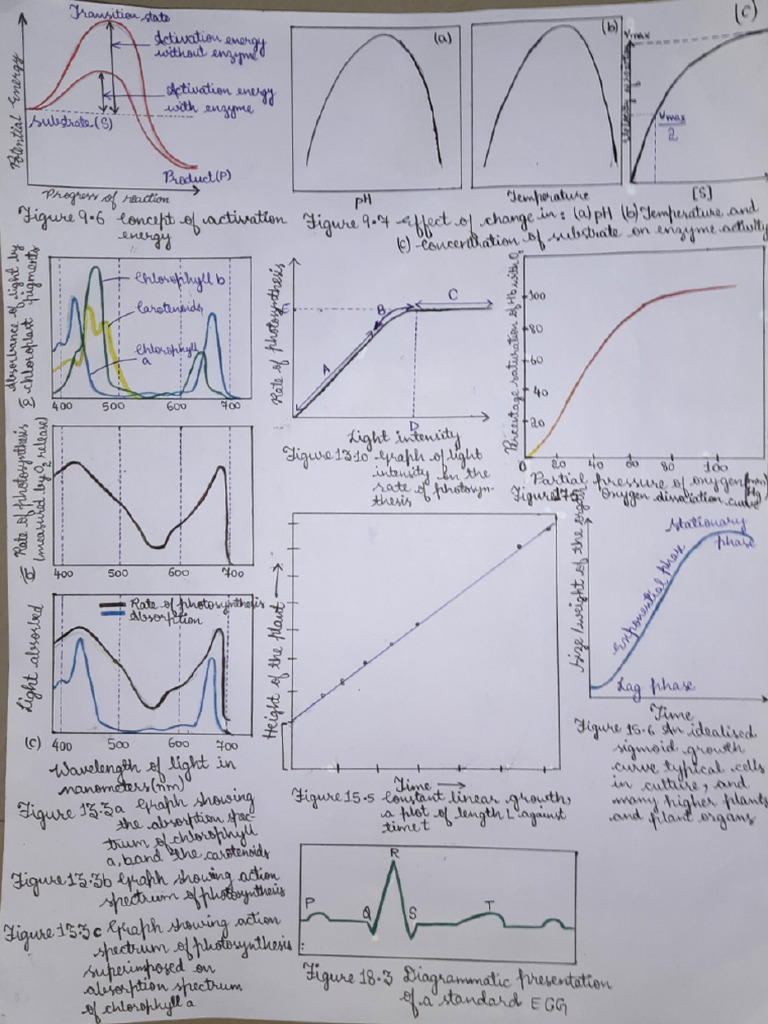 Transition state
Activation energy
without enzyme
Activation energy
with enzyme
Substrate(S)
Product(P)
Potential Energy
Progress of reaction
Figure 9.6 Concept of activation
energy
(a)
pH
(b)
Temperature
(C)
Vmax
Vmax
2
[S]
Figure 9.7 Effect of change in: (a) pH (b) Temperature and
(c) Concentration of substrate on enzyme activity
Absorbance of light by
chloroplast pigments
Chlorophyll b
Carotenoids
Chlorophyll
a
400 500 600 700
Rate of photosynthesis
A
B
C
D
Light intensity
Figure 13.10 Graph of light
intensity on the
rate of photosyn-
thesis
Percentage saturation of Hb with O2
100
80
60
40
20
0 20 40 60 80 100
Partial pressure of oxygen (mm Hg)
Figure 17.5 Oxygen dissociation curve
Rate of photosynthesis
(measured by O2 release)
400 500 600 700
Rate of photosynthesis
Absorption
Light absorbed
(c)
400 500 600 700
Wavelength of light in
nanometers(nm)
Figure 13.3a Graph showing
the absorption spec-
trum of chlorophyll
a, b and the carotenoids
Figure 13.3b Graph showing action
spectrum of photosynthesis
Figure 13.3c Graph showing action
spectrum of photosynthesis
superimposed on
absorption spectrum
of chlorophyll a
Height of the plant
Time
Figure 15.5 Constant linear growth,
a plot of length L against
time t
Size/weight of the organ
stationary
phase
Exponential phase
Lag phase
Time
Figure 15.6 An idealised
sigmoid growth
curve typical cells
in culture, and
many higher plants
and plant organs
P
Q
R
S
T
Figure 18.3 Diagrammatic presentation
of a standard ECG